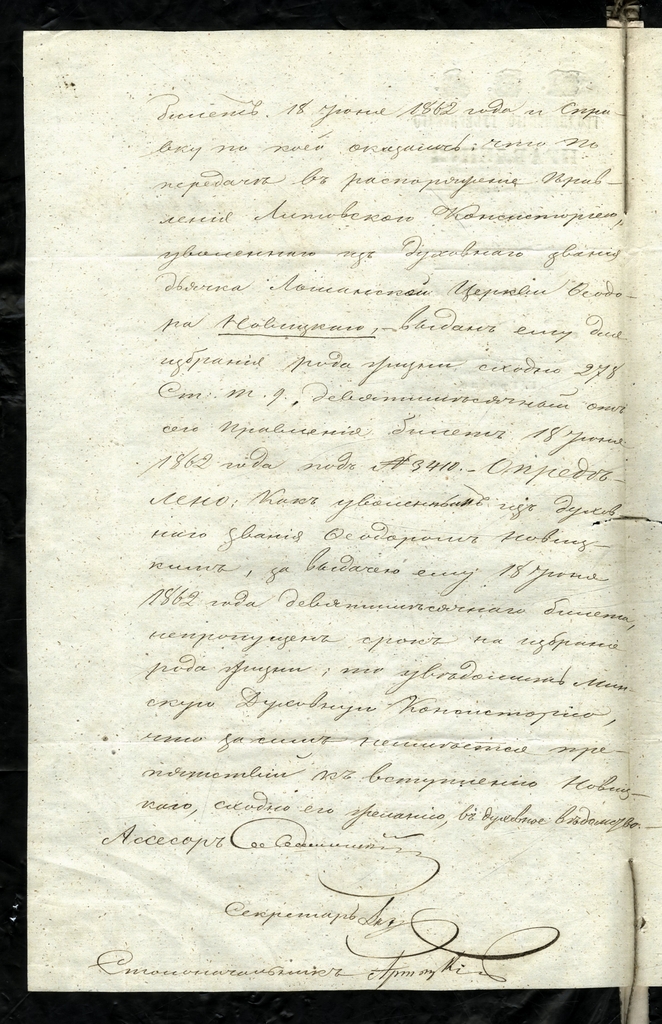 билетъ. 18 Іюня 1862 года и справ-
вку по коей оказалось: что по
передачѣ въ распоряженіе Прав-
ленія Литовскою Консисторіею,
уволеннаго изъ духовнаго званія
дьячка Лошанской Церкви Ѳеодо-
ра Новицкаго, – выданъ ему для
избранія рода жизни сходно 278
Ст. т. 9, девятимѣсячный отъ
сего Правленія билетъ 18 Іюня
1862 года подъ № 3410. – Опредѣ-
лено: Какъ уволеннымъ изъ духов-
наго званія Ѳеодоромъ Новиц-
кимъ, за выдачею ему 18 Іюня
1862 года девятимѣсячнаго билета,
непропущенъ срокъ на избраніе
рода жизни; то увѣдомить Мин-
скую Духовную Консисторію,
что засимъ неимѣется пре-
пятствій къ вступленію Новиц-
каго, сходно его желанію, въ духовное вѣдомство.
Ассесоръ
Секретарь
Столоначальникъ